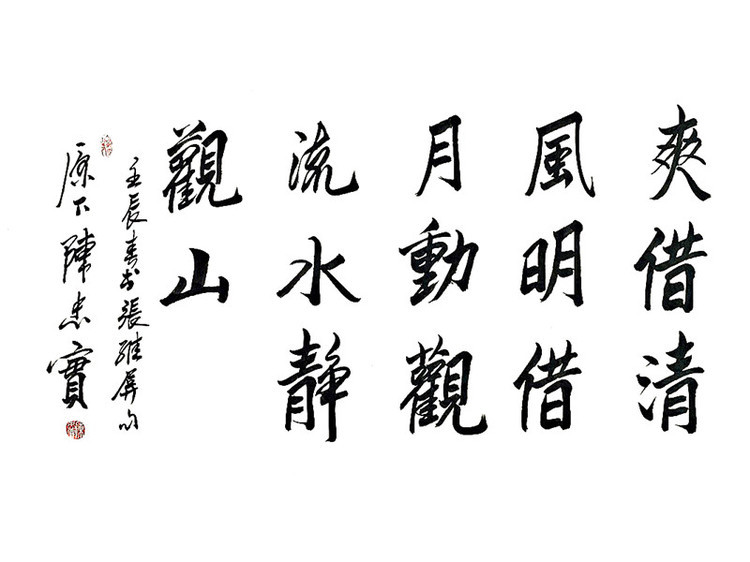 爽借清
風明借
月動觀
流水静
觀山
壬辰春書張維屏句
原下陳忠實